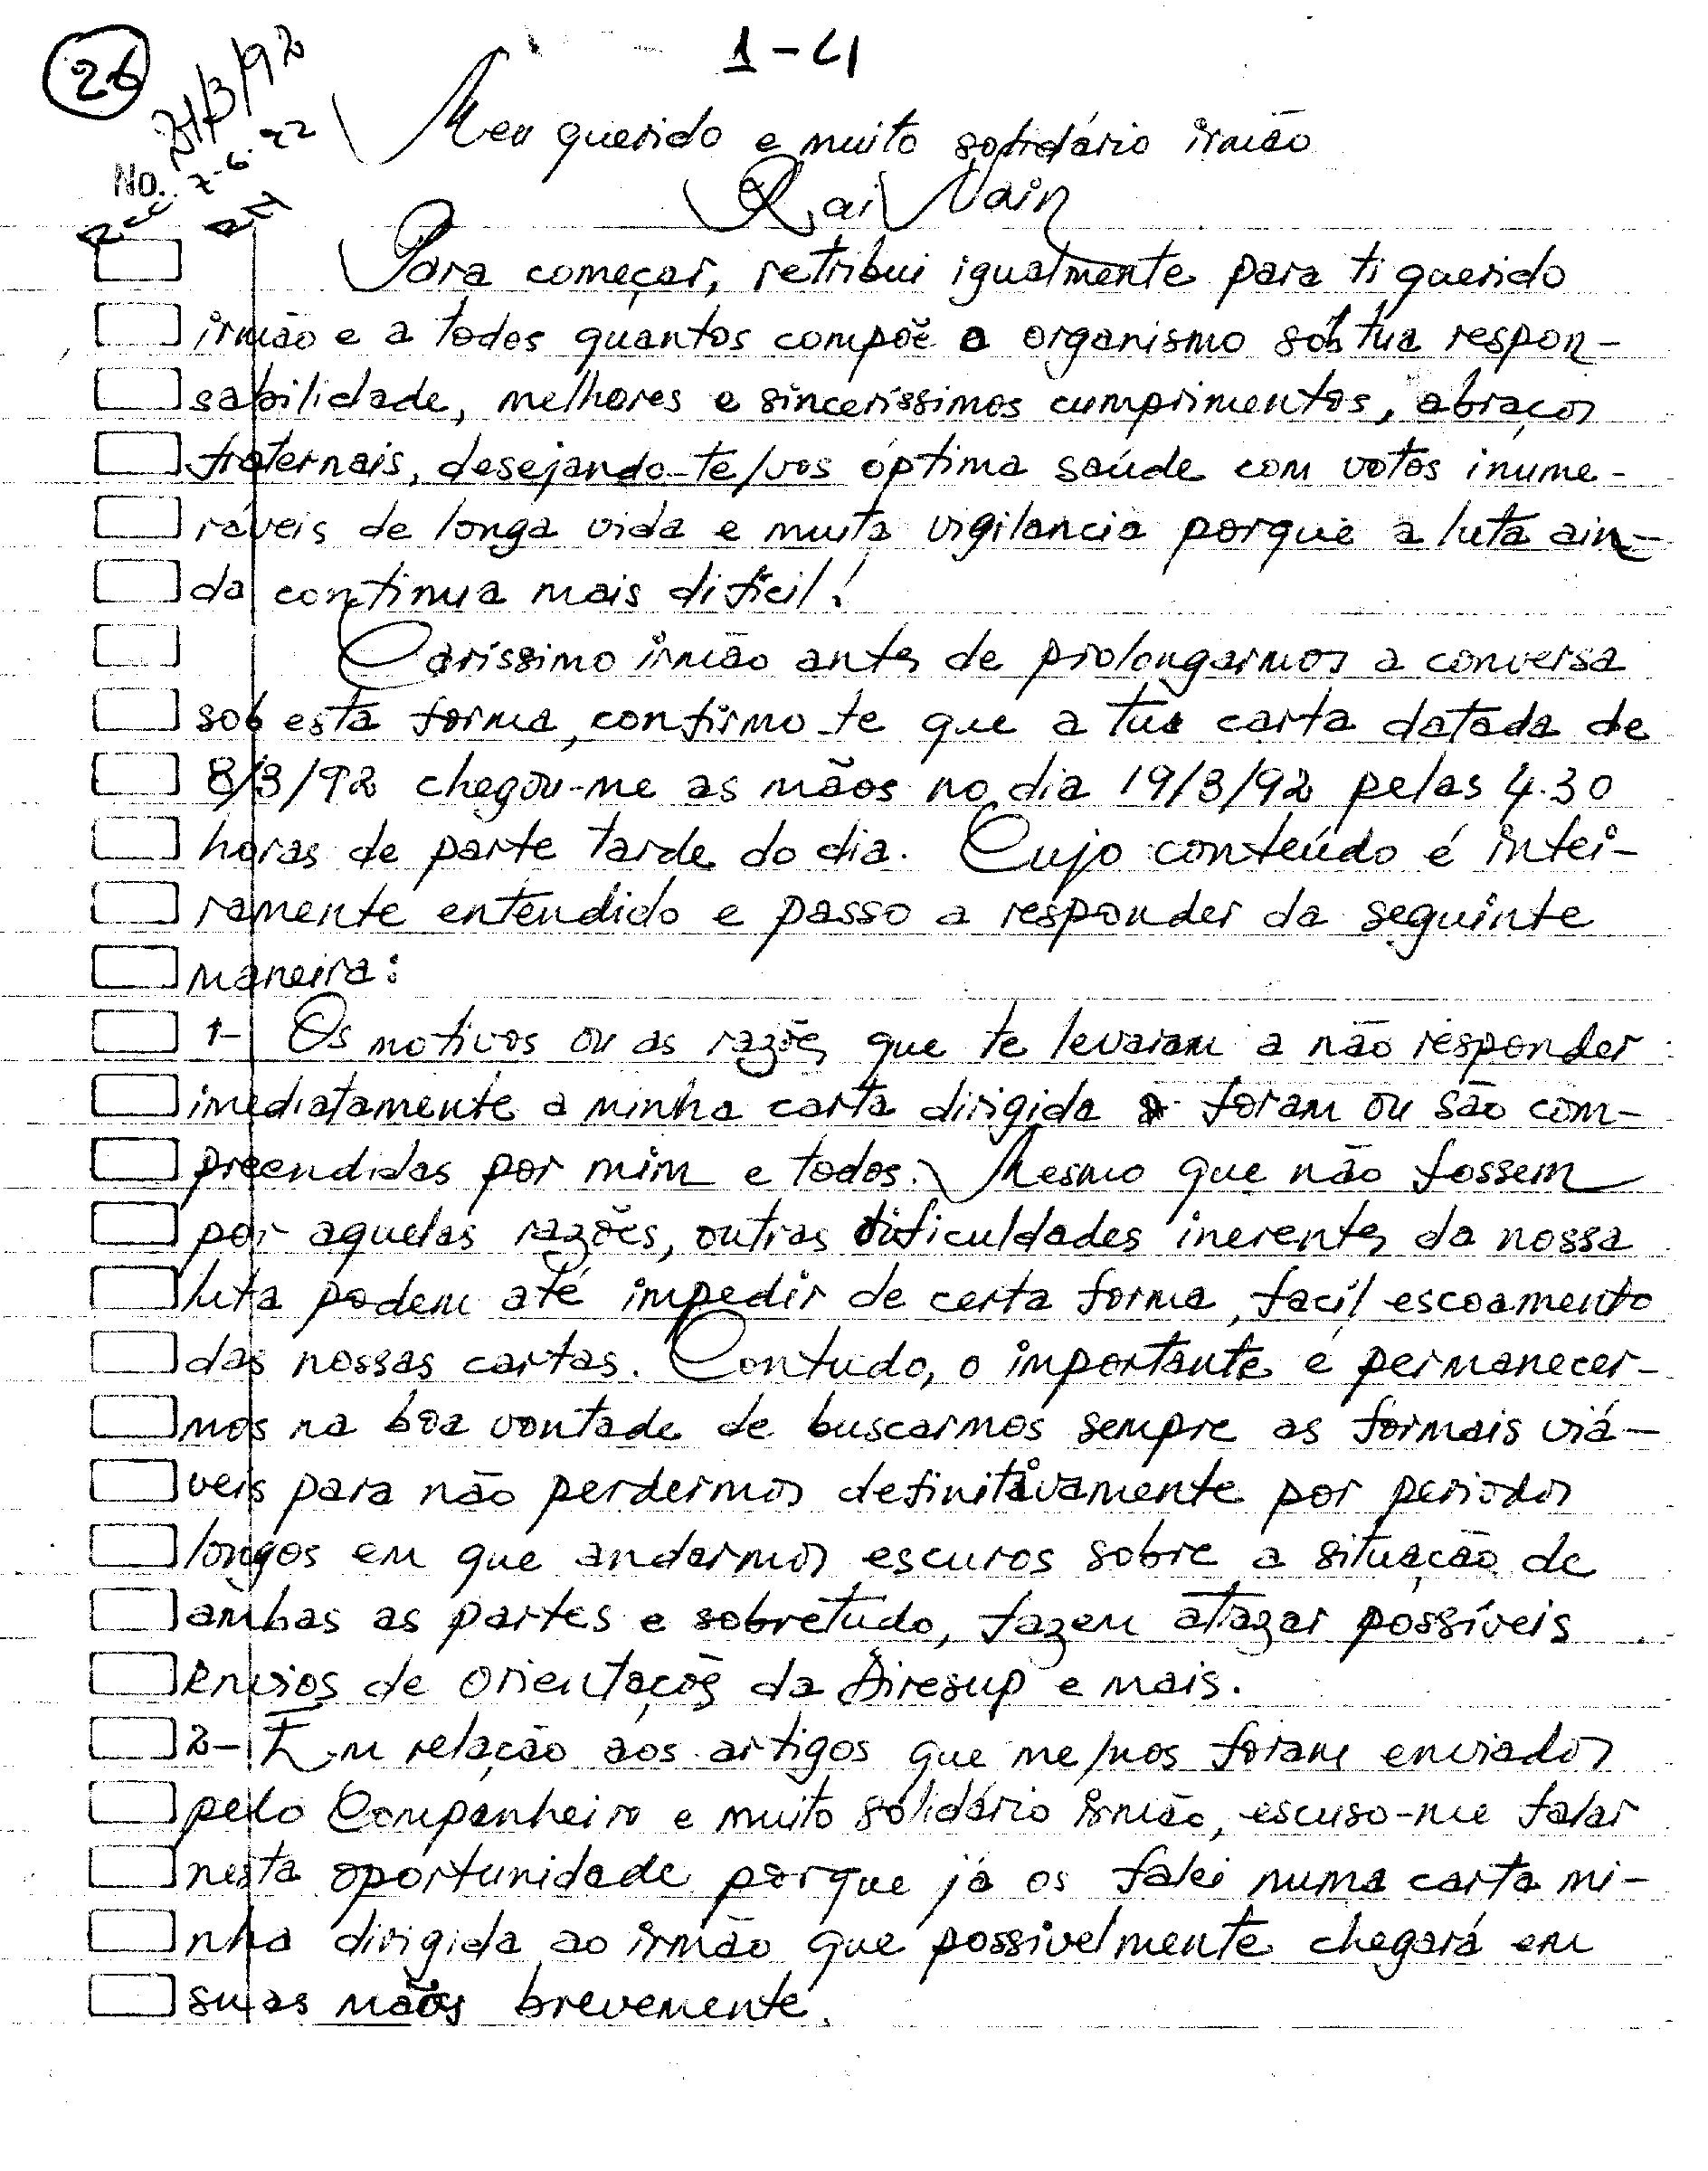 1-4
26
21/3/92
No. 7-6-92
Rec
Meu querido e muito solidário irmão
Rai Vain
Para começar, retribui igualmente para ti querido
irmão e a todos quantos compõe o organismo sob tua respon-
sabilidade, melhores e sinceríssimos cumprimentos, abraços
fraternais, desejando-te/vos óptima saúde com votos inume-
ráveis de longa vida e muita vigilancia porque a luta ain-
da continua mais difícil!
Caríssimo irmão antes de prolongarmos a conversa
sob esta forma, confirmo-te que a tua carta datada de
8/3/92 chegou-me as mãos no dia 19/3/92 pelas 4.30
horas de parte tarde do dia. Cujo conteúdo é intei-
ramente entendido e passo a responder da seguinte
maneira:
1- Os motivos ou as razões que te levaram a não responder
imediatamente a minha carta dirigida foram ou são com-
preendidas por mim e todos. Mesmo que não fossem
por aquelas razões, outras dificuldades inerentes da nossa
luta podem até impedir de certa forma, facil escoamento
das nossas cartas. Contudo, o importante é permanecer-
mos na boa vontade de buscarmos sempre as formais viá-
veis para não perdermos definitivamente por periodos
longos em que andarmos escuros sobre a situação de
ambas as partes e sobretudo, fazem atrazar possíveis
Envios de orientações da Diresup e mais.
2- Em relação aos artigos que me/nos foram enviados
pelo Companheiro e muito solidário irmão, escuso-me falar
nesta oportunidade porque já os falei numa carta mi-
nha dirigida ao irmão que possivelmente chegará em
suas mãos brevemente.